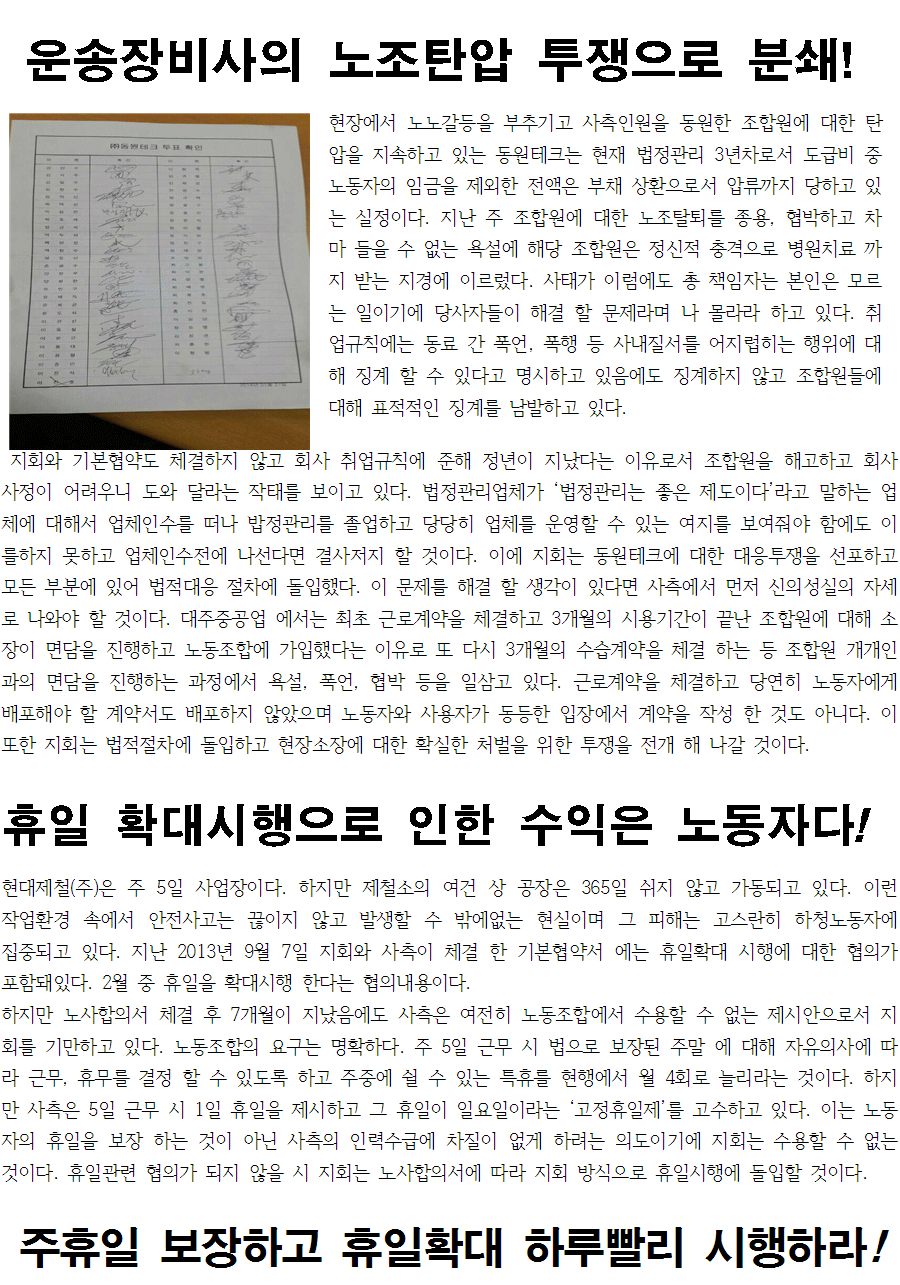 운송장비사의 노조탄압 투쟁으로 분쇄!
㈜동원테크 투표 확인
현장에서 노노갈등을 부추기고 사측인원을 동원한 조합원에 대한 탄
압을 지속하고 있는 동원테크는 현재 법정관리 3년차로서 도급비 중
노동자의 임금을 제외한 전액은 부채 상환으로서 압류까지 당하고 있
는 실정이다. 지난 주 조합원에 대한 노조탈퇴를 종용, 협박하고 차
마 들을 수 없는 욕설에 해당 조합원은 정신적 충격으로 병원치료 까
지 받는 지경에 이르렀다. 사태가 이럼에도 총 책임자는 본인은 모르
는 일이기에 당사자들이 해결 할 문제라며 나 몰라라 하고 있다. 취
업규칙에는 동료 간 폭언, 폭행 등 사내질서를 어지럽히는 행위에 대
해 징계 할 수 있다고 명시하고 있음에도 징계하지 않고 조합원들에
대해 표적적인 징계를 남발하고 있다.
지회와 기본협약도 체결하지 않고 회사 취업규칙에 준해 정년이 지났다는 이유로서 조합원을 해고하고 회사
사정이 어려우니 도와 달라는 작태를 보이고 있다. 법정관리업체가 ‘법정관리는 좋은 제도이다’라고 말하는 업
체에 대해서 업체인수를 떠나 밥정관리를 졸업하고 당당히 업체를 운영할 수 있는 여지를 보여줘야 함에도 이
를하지 못하고 업체인수전에 나선다면 결사저지 할 것이다. 이에 지회는 동원테크에 대한 대응투쟁을 선포하고
모든 부분에 있어 법적대응 절차에 돌입했다. 이 문제를 해결 할 생각이 있다면 사측에서 먼저 신의성실의 자세
로 나와야 할 것이다. 대주중공업 에서는 최초 근로계약을 체결하고 3개월의 시용기간이 끝난 조합원에 대해 소
장이 면담을 진행하고 노동조합에 가입했다는 이유로 또 다시 3개월의 수습계약을 체결 하는 등 조합원 개개인
과의 면담을 진행하는 과정에서 욕설, 폭언, 협박 등을 일삼고 있다. 근로계약을 체결하고 당연히 노동자에게
배포해야 할 계약서도 배포하지 않았으며 노동자와 사용자가 동등한 입장에서 계약을 작성 한 것도 아니다. 이
또한 지회는 법적절차에 돌입하고 현장소장에 대한 확실한 처벌을 위한 투쟁을 전개 해 나갈 것이다.
휴일 확대시행으로 인한 수익은 노동자다!
현대제철(주)은 주 5일 사업장이다. 하지만 제철소의 여건 상 공장은 365일 쉬지 않고 가동되고 있다. 이런
작업환경 속에서 안전사고는 끊이지 않고 발생할 수 밖에없는 현실이며 그 피해는 고스란히 하청노동자에
집중되고 있다. 지난 2013년 9월 7일 지회와 사측이 체결 한 기본협약서 에는 휴일확대 시행에 대한 협의가
포함돼있다. 2월 중 휴일을 확대시행 한다는 협의내용이다.
하지만 노사합의서 체결 후 7개월이 지났음에도 사측은 여전히 노동조합에서 수용할 수 없는 제시안으로서 지
회를 기만하고 있다. 노동조합의 요구는 명확하다. 주 5일 근무 시 법으로 보장된 주말 에 대해 자유의사에 따
라 근무, 휴무를 결정 할 수 있도록 하고 주중에 쉴 수 있는 특휴를 현행에서 월 4회로 늘리라는 것이다. 하지
만 사측은 5일 근무 시 1일 휴일을 제시하고 그 휴일이 일요일이라는 ‘고정휴일제’를 고수하고 있다. 이는 노동
자의 휴일을 보장 하는 것이 아닌 사측의 인력수급에 차질이 없게 하려는 의도이기에 지회는 수용할 수 없는
것이다. 휴일관련 협의가 되지 않을 시 지회는 노사합의서에 따라 지회 방식으로 휴일시행에 돌입할 것이다.
주휴일 보장하고 휴일확대 하루빨리 시행하라!